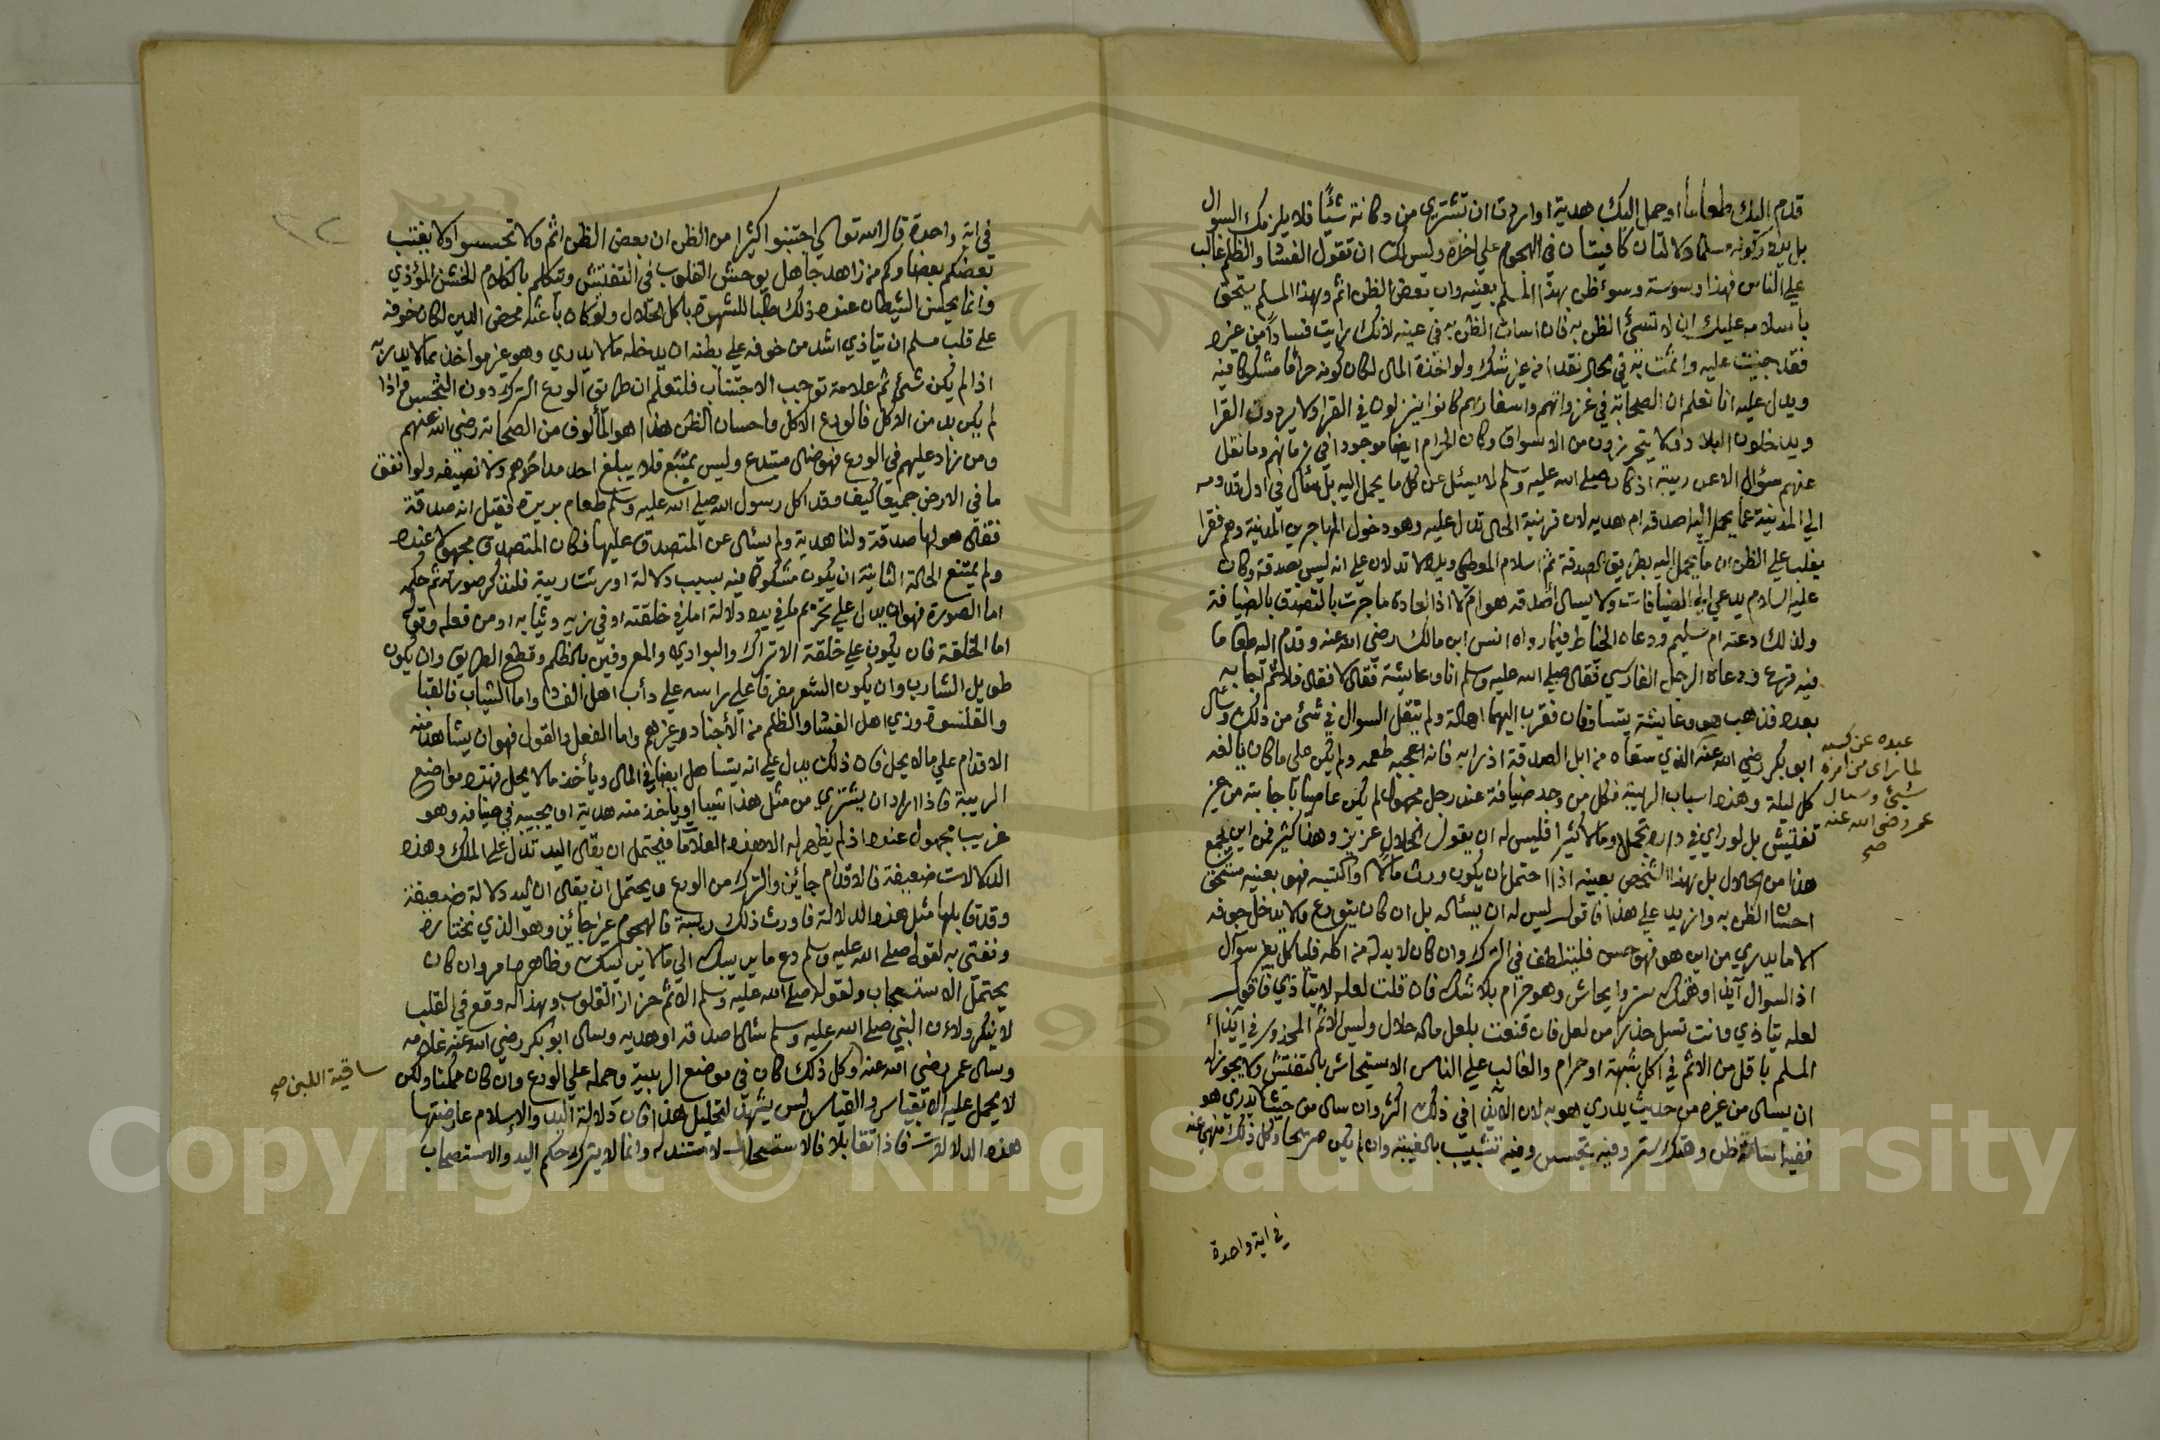 قدم اليك طعاما او حمل اليك هدية او اردت ان تشتري من دكانه شيئا فلا يلزمك السوال
بل يده وكونه مسلما دلالتان كافيتان في الهجوم علي اخذه وليس لك ان تقول الفساد والظلم غالب
علي الناس فهذا وسوسة وسوء ظن بهذا المسلم بعينه وان بعض الظن اثم وهذا المسلم يستحق
باسلامه عليك ان لا تسئ الظن به فان اسات الظن به في عينه لانك رايت فسادا من غيره
فقد جنيت عليه واثمت به في الحال نقدا من غير شك ولو اخذت المال لكان كونه حراما مشكوكا فيه
ويدل عليه انا نعلم ان الصحابة في غزواتهم واسفارهم كانوا ينزلون في القرا ولا يردون القرا
ويدخلون البلاد ولا يتحرزون من الاسواق وكان الحرام ايضا موجودا في زمانهم وما نقل
عنهم سؤال الا عن ريبة اذ كان صلي الله عليه وسلم لا يسئل عن كل ما يحمل اليه بل سأل في اول قدومه
الي المدينة عما يحمل اليه اصدقه ام هديه لان قرينة الحال تدل عليه وهو دخول المهاجرين المدينة وهم فقرا
يغلب علي الظن ان ما يحمل اليه بطريق الصدقة ثم اسلام المعطي ويده لا تدلان علي انه ليس بصدقة وكان
عليه السلام يدعي الي الضيافات ولا يسال اصدقه هو ام لا اذ العادة ما جرت بالتصدق بالضيافة
ولذلك دعته ام سليم ودعاه الخياط فيما رواه انس ابن مالك رضي الله عنه وقدم اليه طعاما
فيه قرع ودعاه الرجل الفارسي فقال صلي الله عليه وسلم انا وعايشة فقال لا فقال فلا ثم اجابه
بعده فذهب هو وعايشة يتساوقان فقرب اليهما اهالة ولم ينقل السوال في شئ من ذلك وسأل
ابو بكر رضي الله عنه الذي سقاه من ابل الصدقة اذ رابه فانه اعجبه طعمه ولم يكن علي ما كان يالفه
كل ليلة وهذه اسباب الريبة فكل من وجد ضيافة عند رجل مجهول لم يكن عاصيا باجابته من غير
تفتيش بل لو راي في داره تجملا ومالا كثيرا فليس له ان يقول الحلال عزيز وهذا كثير فمن اين يجمع
هذا من الحلال بل بهذا الشخص بعينه اذا احتمل ان يكون ورث مالا او اكتسبه فهو بعينه مستحق
احسان الظن به وازيد علي هذا فاقول ليس له ان يسئاله بل ان كان يتورع فلا يدخل جوفه
الا ما يدري من اين هو فهو حسن فليتلطف في الترك وان كان لا بد له من اكله فلياكل بغير سوال
اذ السوال آيذا وهتك ستر وايحاش وهو حرام بلا شك فان قلت لعله لا يتاذي فاقول
لعله يتاذي فانت تسل حذرا من لعل فان قنعت بلعل ماله حلال وليس الاثم المحذور في آيذاء
المسلم باقل من الاثم في اكل شبهة او حرام والغالب علي الناس الاستيحاش بالتفتيش ولا يجوز له
ان يسال من غيره من حيث يدري هو به لان الايذا في ذلك اكثر وان سال من حيث لا يدري هو
ففيه اسائة ظن وهتك ستر وفيه تجسس وفيه تشبيب بالغيبة وان لم يكن صريحا وكل ذلك منهي عنه
عبده عن كسبه
لما راي من امره
شيئ وسال
عمر رضي الله عنه
صح
في اية واحدة
في اية واحدة قال الله تعالي اجتنبوا كثيرا من الظن ان بعض الظن اثم ولا تجسسوا ولا يغتب
بعضكم بعضا وكم من زاهد جاهل يوحش القلوب في التفتيش ويتكلم بالكلام الخشن المؤذي
وانما يحسن الشيطان عنده ذلك طلبا للشهرة باكل الحلال ولو كان باعثه محض الدين لكان خوفه
علي قلب مسلم ان يتاذي اشد من خوفه علي بطنه ان يدخله ما لا يدري وهو غير مواخذ بما لا يدري
اذا لم يكن شئ ثم علامة توجب الاجتناب فلتعلم ان طريق الورع الترك دون التجسس واذا
لم يكن بد من الاكل فالورع الاكل واحسان الظن هذا هو المألوف من الصحابة رضي الله عنهم
ومن زاد عليهم في الورع فهو ضال مبتدع وليس بمتبع فلن يبلغ احد مد احدهم ولا نصيفه ولو انفق
ما في الارض جميعا كيف وقد اكل رسول الله صلي الله عليه وسلم طعام بريرة فقيل انه صدقة
فقال هو لها صدقة ولنا هدية ولم يسئل عن المتصدق عليها فكان المتصدق مجهولا عنده
ولم يمتنع الحالة الثانية ان يكون مشكوكا فيه بسبب دلالة اورثت ريبة فلنذكر صورته ثم حكمه
اما الصورة فهو ان يدل علي تحريم ما في يده دلالة اما في خلقته او في زيه وثيابه او من فعله وقوله
اما الخلقة فان يكون علي خلقة الاتراك والبوادي والمعروفين بالظلم وقطع الطريق وان يكون
طويل الشارب وان يكون الشعر مفرقا علي راسه علي دأب اهل الفساد واما الثياب فالقبا
والقلنسوة وزي اهل الفساد والظلم من الأجناد وغيرهم واما الفعل والقول فهو ان يشاهد منه
الاقدام علي ما لا يحل فان ذلك يدل علي انه يتساهل ايضا في المال ويأخذ ما لا يحل فهذه مواضع
الريبة فاذا اراد ان يشتري من مثل هذا شيا او ياخذ منه هدية او يجيبه في ضيافه وهو
غريب مجهول عنده اذ لم يظهر له الا هذه العلامات فيحتمل ان يقال اليد تدل علي الملك وهذه
الدلالات ضعيفة فالاقدام جائز والترك من الورع ويحتمل ان يقال ان اليد دلالة ضعيفة
وقد قابلها مثل هذه الدلالة فاورث ذلك ريبة فالهجوم غير جائز وهو الذي نختاره
ونفتي به لقوله صلي الله عليه وسلم دع ما يريبك الي ما لا يريبك وظاهره امر وان كان
يحتمل الاستحباب ولقوله صلي الله عليه وسلم الاثم حزاز القلوب وهذا له وقع في القلب
لا ينكر ولان النبي صلي الله عليه وسلم سئال اصدقه او هديه وسال ابو بكر رضي الله عنه غلامه
وسال عمر رضي الله عنه وكل ذلك كان في موضع الريبة وحمله علي الورع وان كان ممكنا ولكن
لا يحمل عليه الا بقياس والقياس ليس يشهد لتحليل هذا فان دلالة اليد والاسلام عارضتها
هذه الدلالات فاذا تقابلا فالاستحلال لا مستند له وانما لا يترك حكم اليد والاستصحاب
ساقية اللبن صح
Copyright © King Saud University